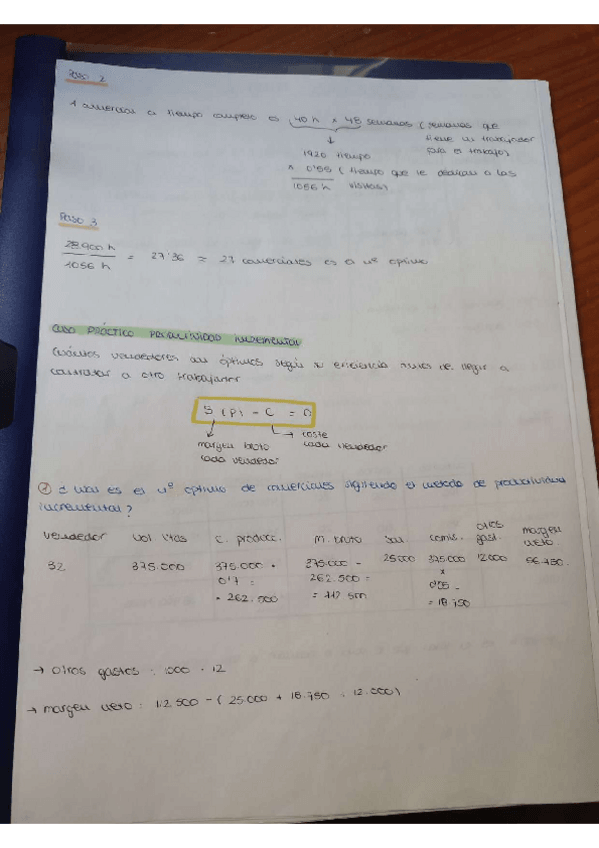 Paso 2
1 comercial a tiempo completo es 40 h x 48 semanas (semanas que
tiene un trabajador
para el trabajo)
1920 tiempo
x 0'55 (tiempo que le dedican a las
visitas)
1056 h
Paso 3
28.900 h
1056 h
= 27'36 = 27 comerciales es el nº óptimo
CASO PRÁCTICO PRODUCTIVIDAD INCREMENTAL
Cuántos vendedores son óptimos según su eficiencia antes de llegar a
contratar a otro trabajador
S (P) - C = 0
margen bruto
cada vendedor
coste
cada vendedor
¿Cuál es el nº óptimo de comerciales siguiendo el método de productividad
incremental?
vendedor vol vtas c. producc. M. bruto comis. otros gast. margen neto
32 375.000 375.000 · 375.000 - 25000 375.000 12.000 56.750
0'7 = 262.500 = x
= 262.500 = 112.500 0'05 =
= 18.750
→ otros gastos : 1000 · 12
→ margen neto : 112.500 - (25.000 + 18.750 + 12.000)